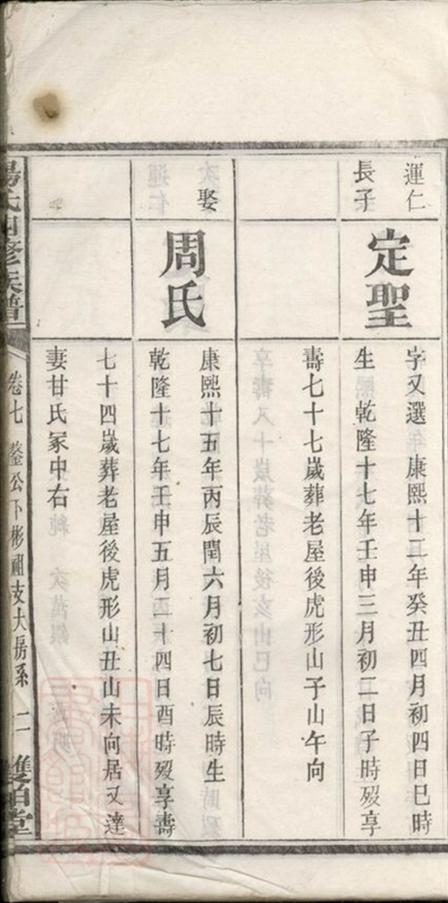 運仁
長子
定聖
字又選 康熙十二年癸丑四月初四日巳時
生 乾隆十七年壬申三月初二日子時歿享
壽七十七歲葬老屋後虎形山子山午向
娶
周氏
康熙十五年丙辰閏六月初七日辰時生
乾隆十七年壬申五月二十四日酉時歿享壽
七十四歲葬老屋後虎形山丑山未向居又達
妻甘氏冢中右
楊氏四修族譜 卷七 公下彬祖支大房系 二 雙柏堂